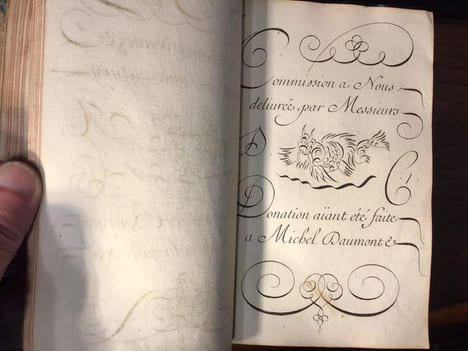 Commission a Nous
delivrée par Messieurs
Donation aïant été faite
a Michel Daumont &